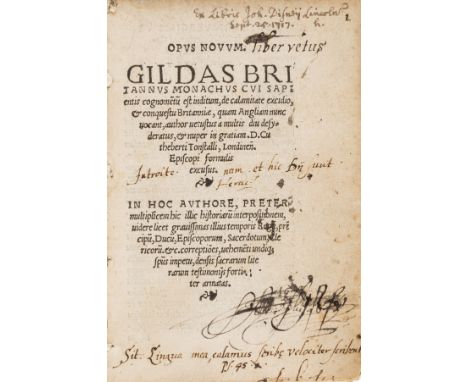 Ex Libris Joh. Disney Lincolns 1
Sept. 25. 1717. h.
OPVS NOVVM. liber vetus
GILDAS BRI
TANNVS MONACHVS CVI SAPI
entis cognomētū est inditum, de calamitate excidio,
& conquestu Britanniæ, quam Angliam nunc
uocant, author uetustus a multis diu desy-
deratus, & nuper in gratiam. D. Cu
theberti Tonstalli, Londineñ.
Episcopi formulis
excusus.
Introite nam et hic Dij sunt
IN HOC AVTHORE, PRETER
multiplicem hic illic historiarū interpositionem,
uidere licet grauissimas illius temporis Regū, prī
cipū, Ducū, Episcoporum, Sacerdotum, Cle
ricorū &c. correptiōes, uehemēti undiq;
spūs impetu, densis sacrarum lite
rarum testimonijs forti-
ter armatas.
Sit Lingua mea, calamus scribę velociter scribent
Ps. 45